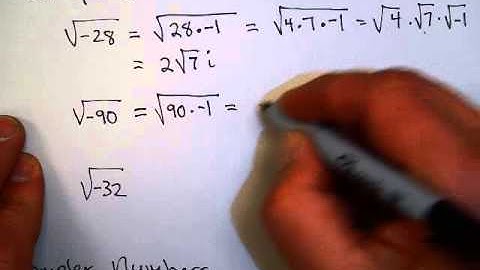 √-28 = √28·-1 = √4·7·-1 = √4·√7·√-1
= 2√7 i
√-90 = √90·-1 =
√-32
Numbers